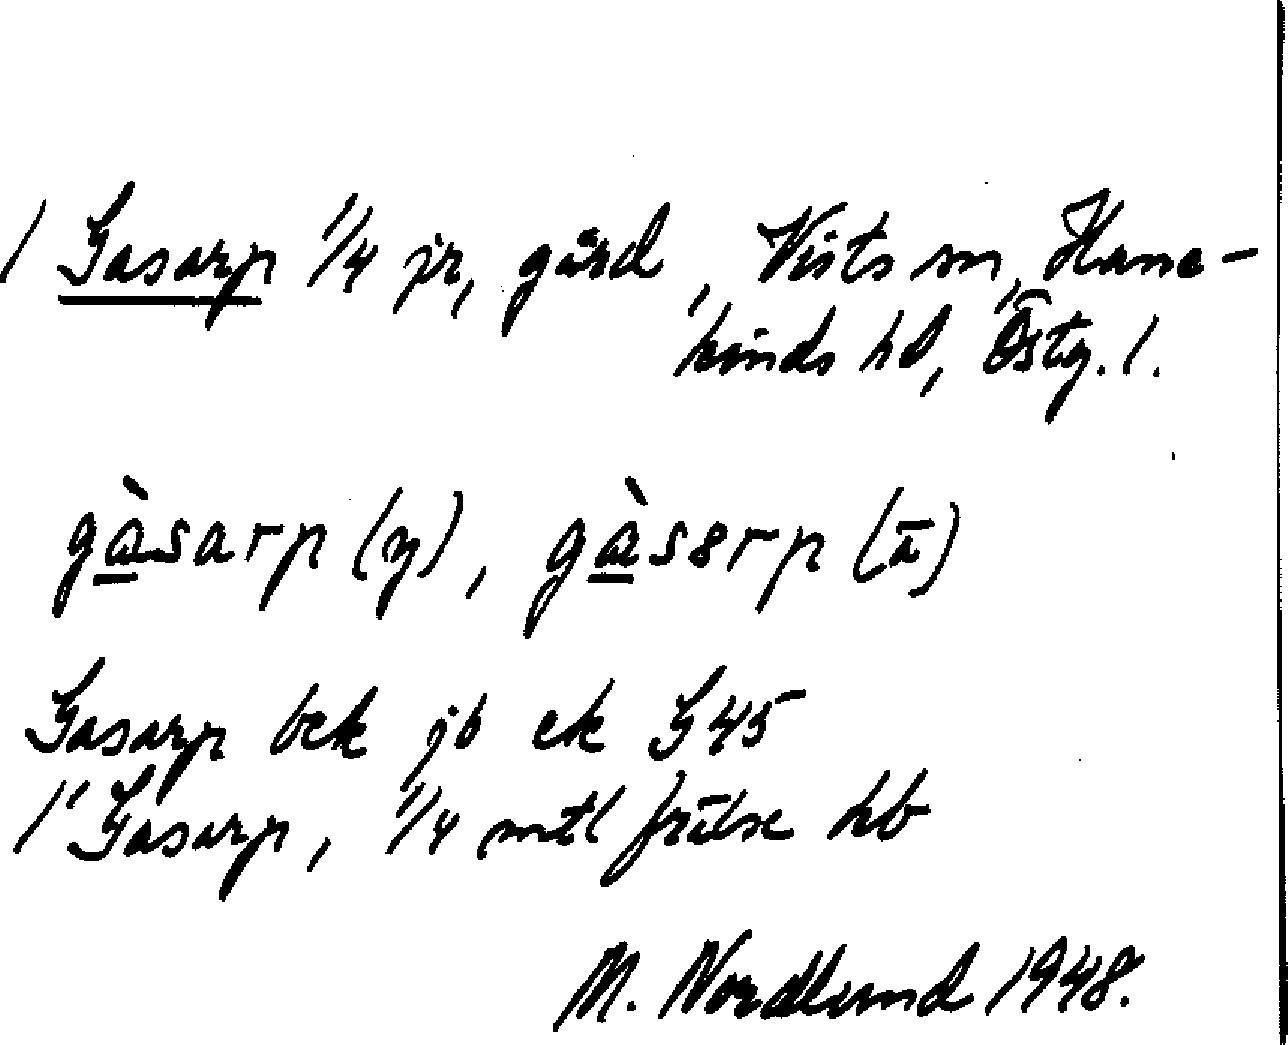 1 Gasarp 1/4 fr, gård, Viests sn, Hane-
kinds hd, Östg. l.
gàsarp (y), gàsərp (ä)
Gasarp bek jb ek G45
1' Gasarp, 1/4 mtl frälse hb
M. Nordlund 1948.